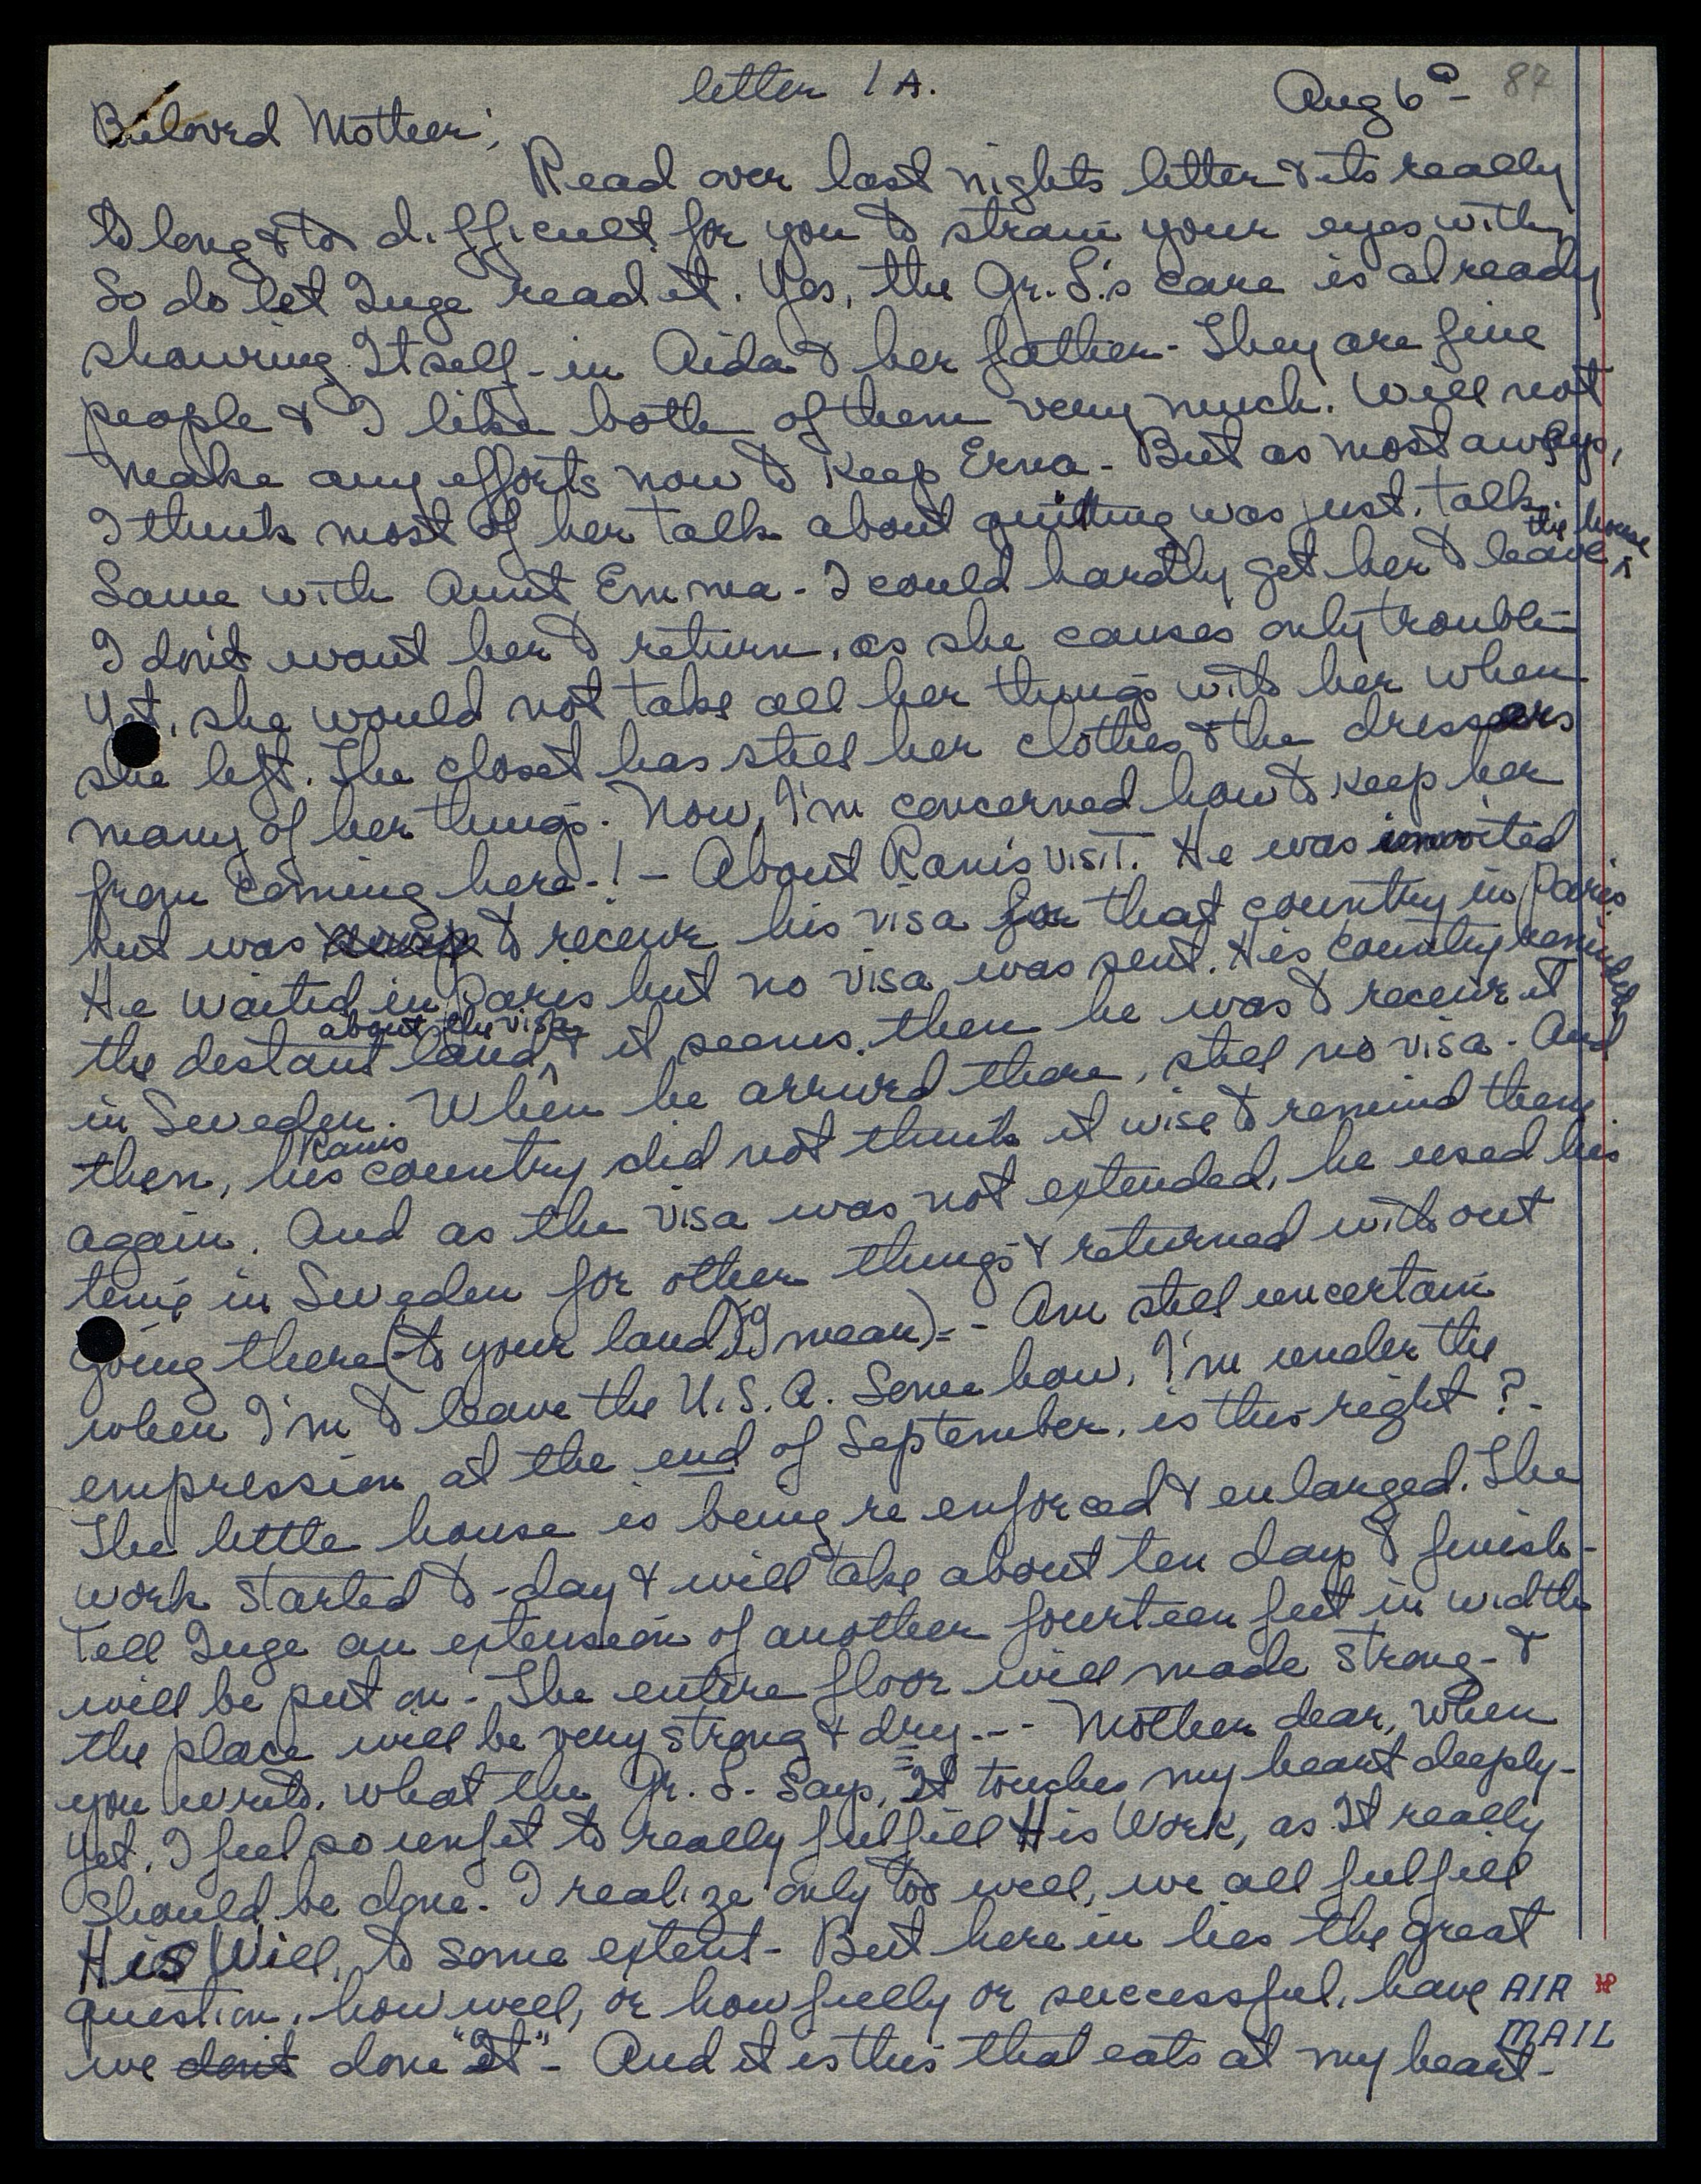 letter 1A.
Aug 6th - 87
Beloved Mother;
Read over last nights letter & its really
to long & to difficult for you to strain your eyes with,
So do let Inge read it. Yes, the Gr. L.'s care is already
showing Itself - in Aida & her father - They are fine
people & I like both of them very much. Will not
make any efforts now to keep Erna - But as most aways,
I think most of her talk about quitting was just, talk.
Same with Aunt Emma - I could hardly get her to leave the house
I don't want her to return, as she causes only trouble -
Yet, she would not take all her things with her when
she left. The closet has still her clothes & the dressers
many of her things. Now, I'm concerned how to keep her
from coming here - ! - About Ram's visit. He was invited
but was to receive his visa for that country in Paris
He waited in Paris but no visa was sent. His country reminded
the distant land about the visa & it seems, then he was to receive it
in Sweden. When he arrived there, still no visa. And
then, his Rams country did not think it wise to remind them
again. And as the visa was not extended, he used his
time in Sweden for other things & returned without
going there (to your land, I mean) = - Am still uncertain
when I'm to leave the U.S.A. Some how, I'm under the
empression at the end of September, is this right? -
The little house is being re enforced & enlarged. The
work started to-day & will take about ten days to finish -
Tell Inge an extension of another fourteen feet in width
will be put on - The entire floor will made strong - &
the place will be very strong & dry. - - Mother dear, when
you write, what the Gr. L. says, It touches my heart deeply -
Yet, I feel so unfit to really fulfill His Work, as It really
should be done. I realize only too well, we all fulfill
His Will, to some extent - But here in lies the great
question, how well, or how fully or successful, have
we dont done "It" - And it is this that eats at my heart -
AIR
MAIL